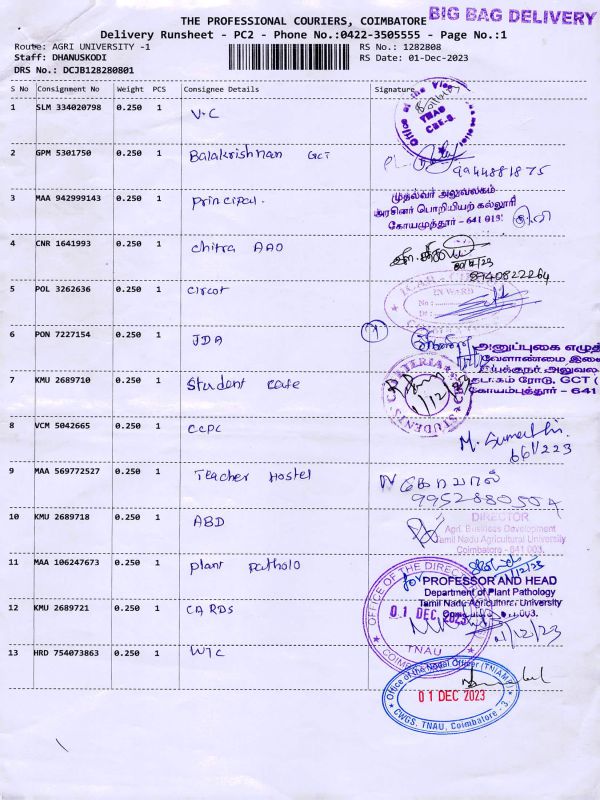 THE PROFESSIONAL COURIERS, COIMBATORE
BIG BAG DELIVERY
Delivery Runsheet - PC2 - Phone No.:0422-3505555 - Page No.:1
Route: AGRI UNIVERSITY -1
RS No.: 1282808
Staff: DHANUSKODI
RS Date: 01-Dec-2023
DRS No.: DCJB128280801
S No Consignment No Weight PCS Consignee Details Signature
1 SLM 334020798 0.250 1 V.C
2 GPM 5301750 0.250 1 Balakrishnan GCT
9944881875
3 MAA 942999143 0.250 1 Principal.
முதல்வர் அலுவலகம்
அரசினர் பொறியியற் கல்லூரி
கோயமுத்தூர் - 641 013.
4 CNR 1641993 0.250 1 Chitra AAO
8940822264
5 POL 3262636 0.250 1 Circot
INWARD
No :
Dt :
6 PON 7227154 0.250 1 JDA
1
அனுப்புகை எழுத்
வேளாண்மை இணை
அலுவல
தடாகம் ரோடு, GCT (
கோயம்புத்தூர் - 641
7 KMU 2689710 0.250 1 Student cafe
STUDENTS CAFETERIA
1/12/23
8 VCM 5042665 0.250 1 CCPC
M. Sumathi
9 MAA 569772527 0.250 1 Teacher Hostel
9952880504
10 KMU 2689718 0.250 1 ABD
DIRECTOR
Agri. Business Development
Tamil Nadu Agricultural University
Coimbatore - 641 003.
11 MAA 106247673 0.250 1 plant patholo
for
PROFESSOR AND HEAD
Department of Plant Pathology
Tamil Nadu Agricultural University
OFFICE OF THE DIRECTOR
01 DEC 2023
TNAU
12 KMU 2689721 0.250 1 CARDS
1/12/23
13 HRD 754073863 0.250 1 WTC
Office of the Nodal Officer (TNIAMP)
01 DEC 2023
CWGS, TNAU, Coimbatore - 3.